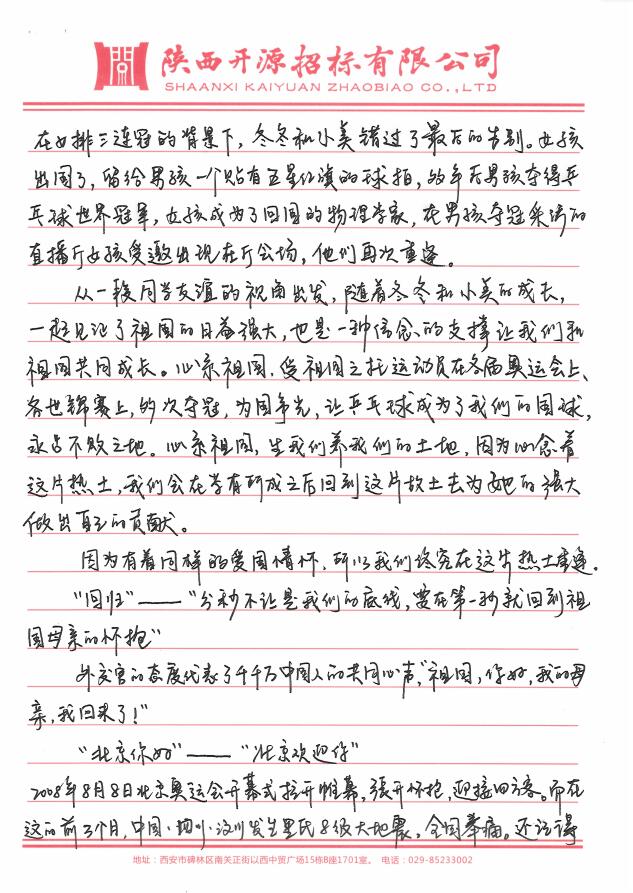 陕西开源招标有限公司
SHAANXI KAIYUAN ZHAOBIAO CO.,LTD
在女排三连冠的背景下，冬冬和小美错过了最后的告别。女孩
出国了，留给男孩一个贴有五星红旗的球拍，多年后男孩夺得乒
乓球世界冠军，女孩成为了回国的物理学家，在男孩夺冠采访的
直播厅女孩受邀出现在厅会场，他们再次重逢。
从一段同学友谊的视角出发，随着冬冬和小美的成长，
一起见证了祖国的日益强大，也是一种信念的支撑让我们和
祖国共同成长。心系祖国，受祖国之托运动员在各届奥运会上、
各世锦赛上，多次夺冠，为国争光，让乒乓球成为了我们的国球，
永占不败之地。心系祖国，生我们养我们的土地，因为心念着
这片热土，我们会在学有所成之后回到这片故土去为她的强大
做出自己的贡献。
因为有着同样的爱国情怀，所以我们终究在这片热土重逢。
“回归”——“分秒不让是我们的底线，要在第一秒就回到祖
国母亲的怀抱”
外交官的态度代表了千千万中国人的共同心声，“祖国，你好，我的母
亲，我回来了！”
“北京你好”——“北京欢迎你”
2008年8月8日北京奥运会开幕式拉开帷幕，张开怀抱，迎接四方客。而在
这的前3个月，中国·四川·汶川发生里氏8级大地震，全国奉痛。还记得
地址：西安市碑林区南关正街以西中贸广场15栋B座1701室。 电话：029-85233002